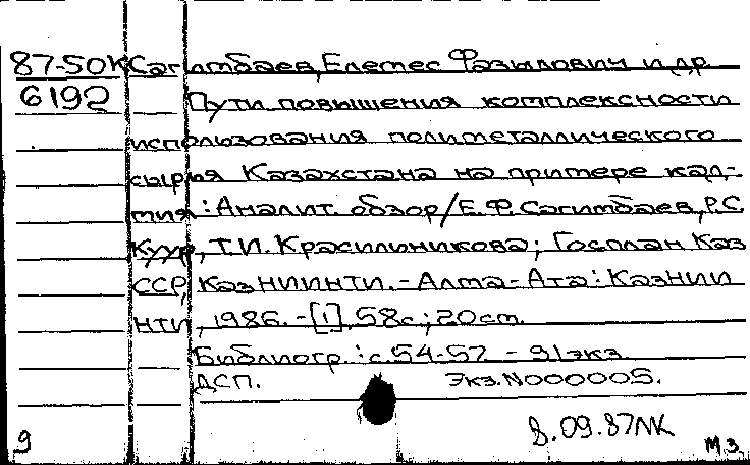 87-50К Сагитбаев, Елемес Фазылович и др
6192 Пути повышения комплексности
использования полиметаллического
сырья Казахстана на примере кад-
мия: Аналит. обзор/Е.Ф. Сагитбаев, Р.С.
Куур, Т.И. Красильникова; Госплан Каз
ССР, КазНИИНТИ. - Алма-Ата: КазНИИ
НТИ, 1986. - [1], 58с; 20см.
Библиогр.: с. 54-57 - 91экз
ДСП. Экз. N000005.
8.09.87ЛК
9 М.З.